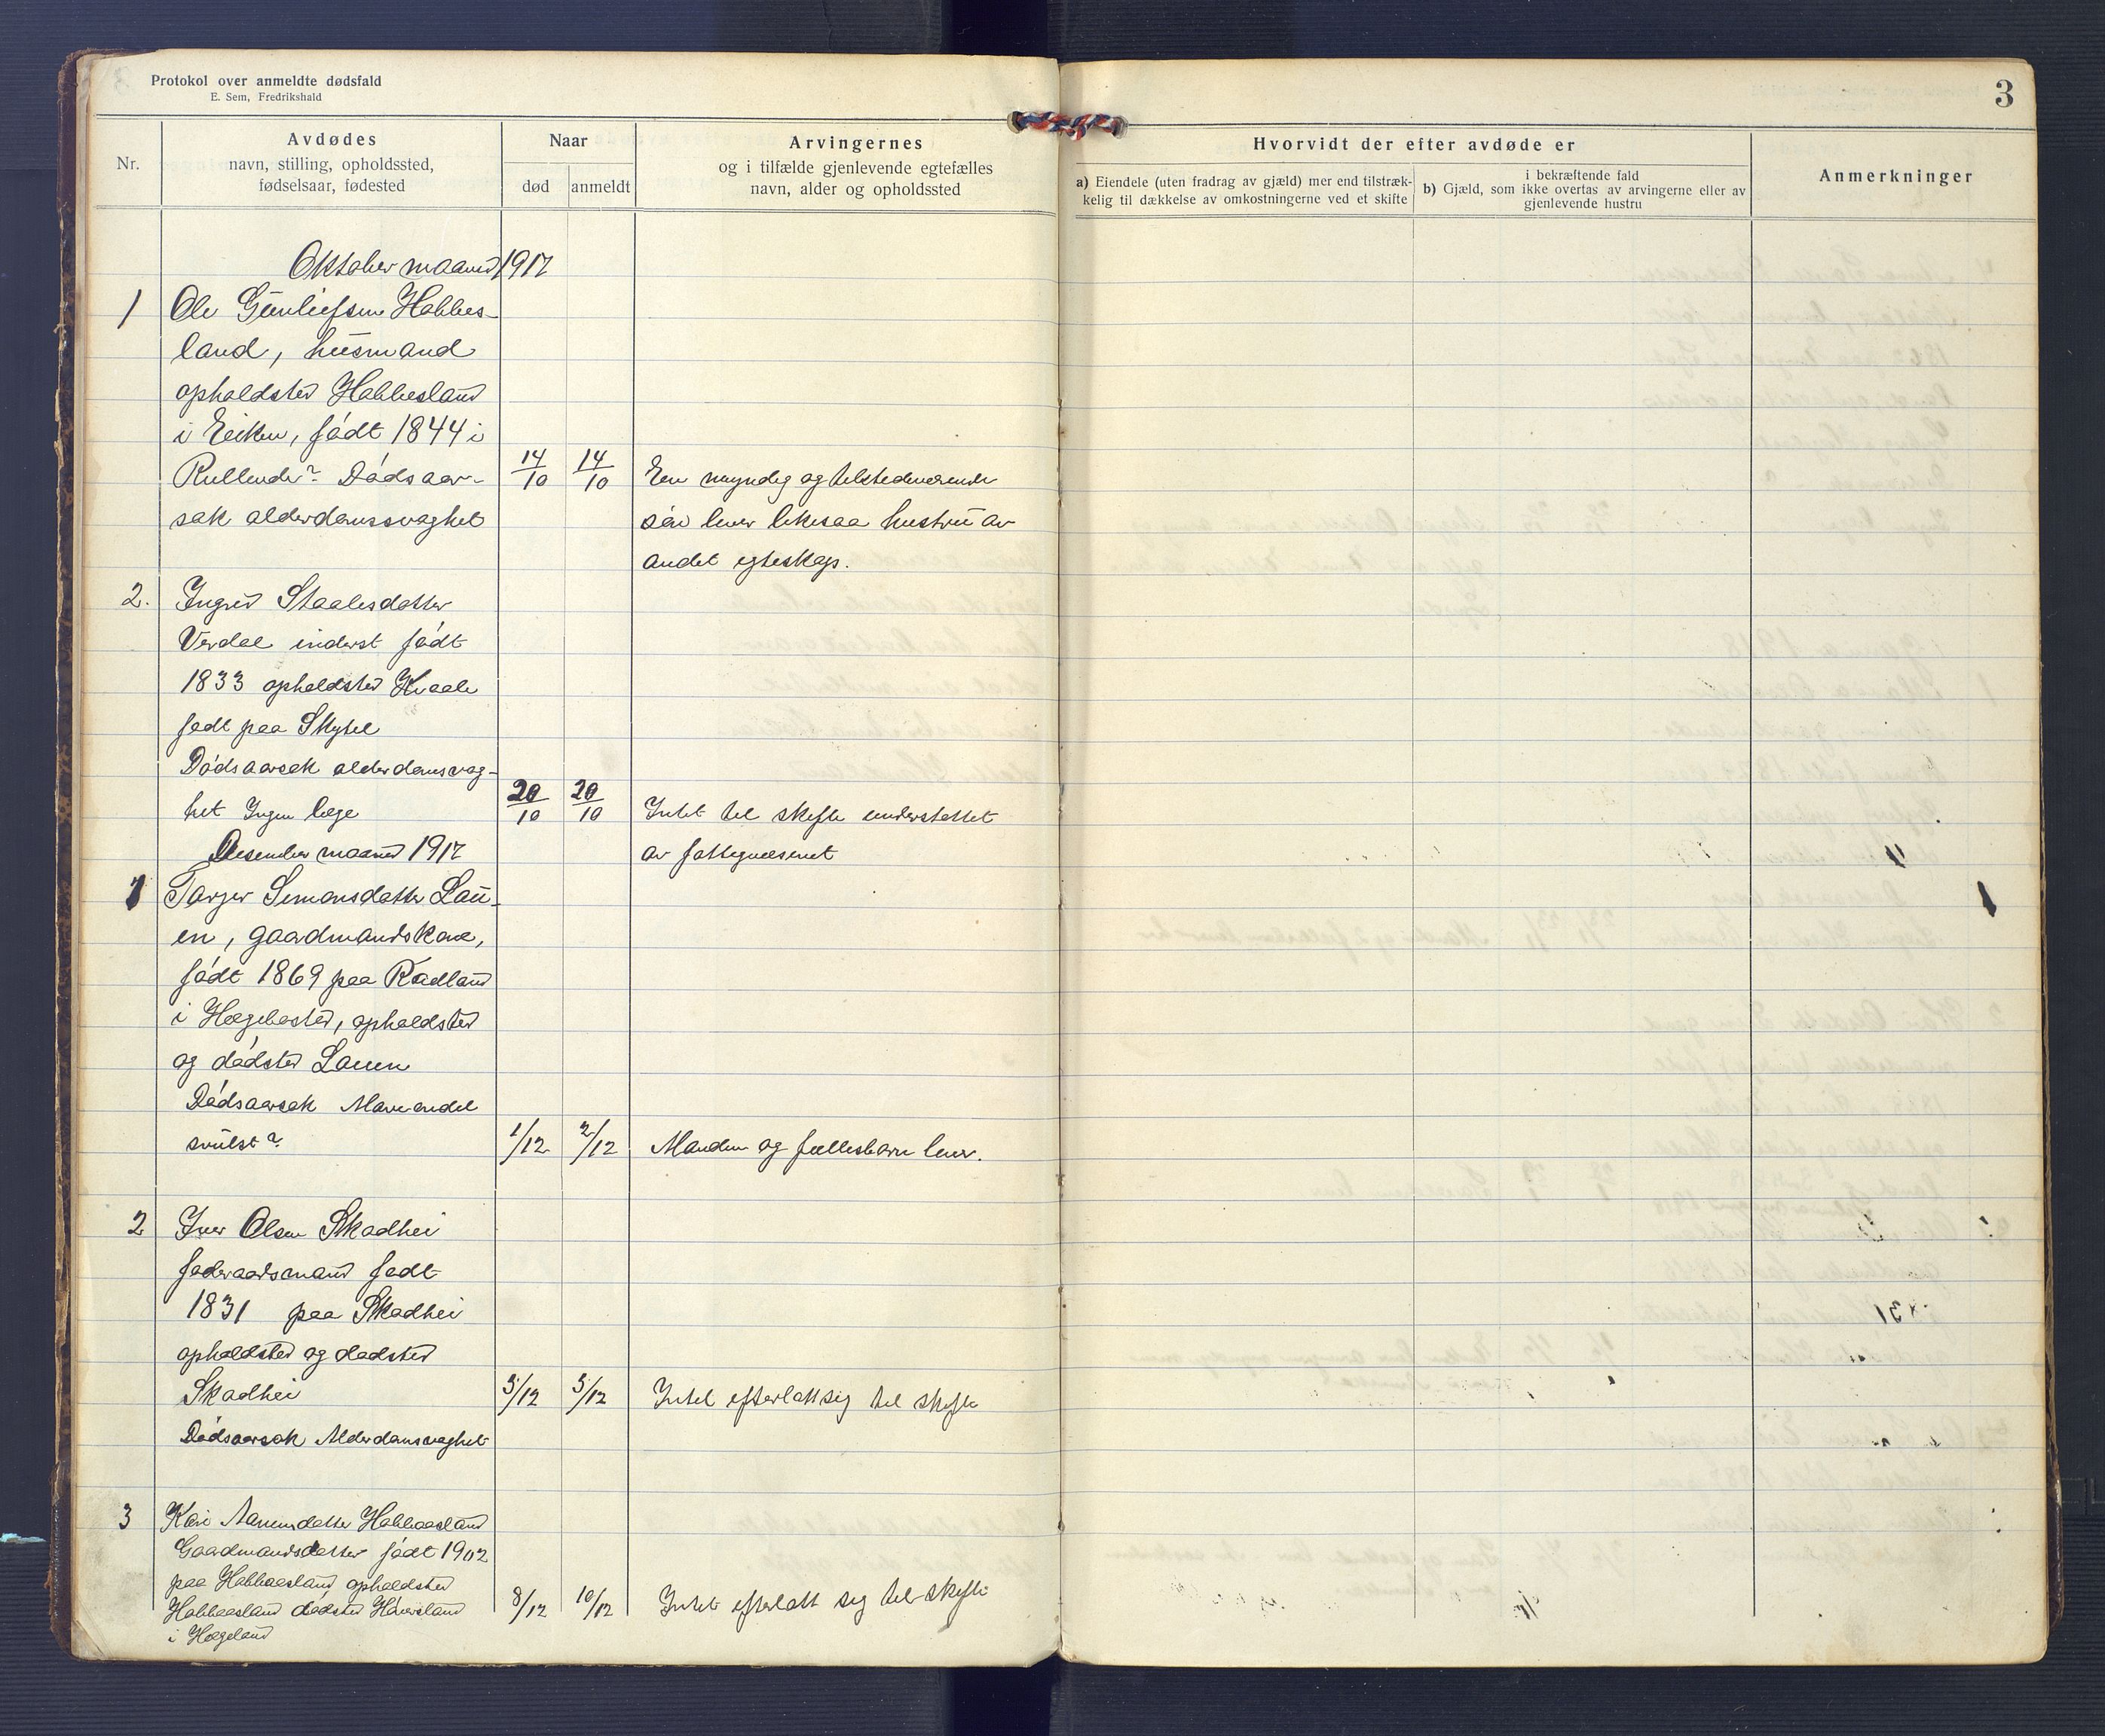 Protokol over anmeldte dødsfald
E. Sem, Fredrikshald
3
Nr.
Avdødes
navn, stilling, opholdssted,
fødselsaar, fødested
Naar
død
anmeldt
Arvingernes
og i tilfælde gjenlevende egtefælles
navn, alder og opholdssted
Hvorvidt der efter avdøde er
a) Eiendele (uten fradrag av gjæld) mer end tilstræk-
kelig til dækkelse av omkostningerne ved et skifte
i bekræftende fald
b) Gjæld, som ikke overtas av arvingerne eller av
gjenlevende hustru
Anmerkninger
Oktober maaned 1917
1 Ole Gunliefsen Hobbes-
land, husmand
opholdsted Hobbesland
i Eiken, født 1844 i
Dødsaar- 14/10 14/10 En myndig og tilstedeværende
sak alderdomssvaghet søn lever likesaa hustru av
andet egteskap.
2. Ingrid Staalesdatter
Verdal inderst født
1833 opholdsted Kvaale
født paa
Dødsaarsak alderdomsvag-
het Ingen læge 20/10 20/10 Intet til skifte understøttet
Desember maaned 1917 av fattigvæsenet
1 Simonsdatter Lau-
en, gaardmandskone,
født 1869 paa
i Hægebostad, opholdsted
og dødsted Lauen
Dødsaarsak
svulst? 1/12 2/12 Manden og fællesbarn lever.
2 Iver Olsen Skadhei
føderaadsmand født
1831 paa Skadhei
opholdsted og dødsted
Skadhei 5/12 5/12 Intet efterlatt sig til skifte
Dødsaarsak Alderdomsvaghet
3 Kari Aanensdatter Hobbesland
Gaardmandsdatter født 1902
paa Hobbesland opholdsted
Hobbesland dødsted 8/12 10/12 Intet efterlatt sig til skifte
i Hægeland